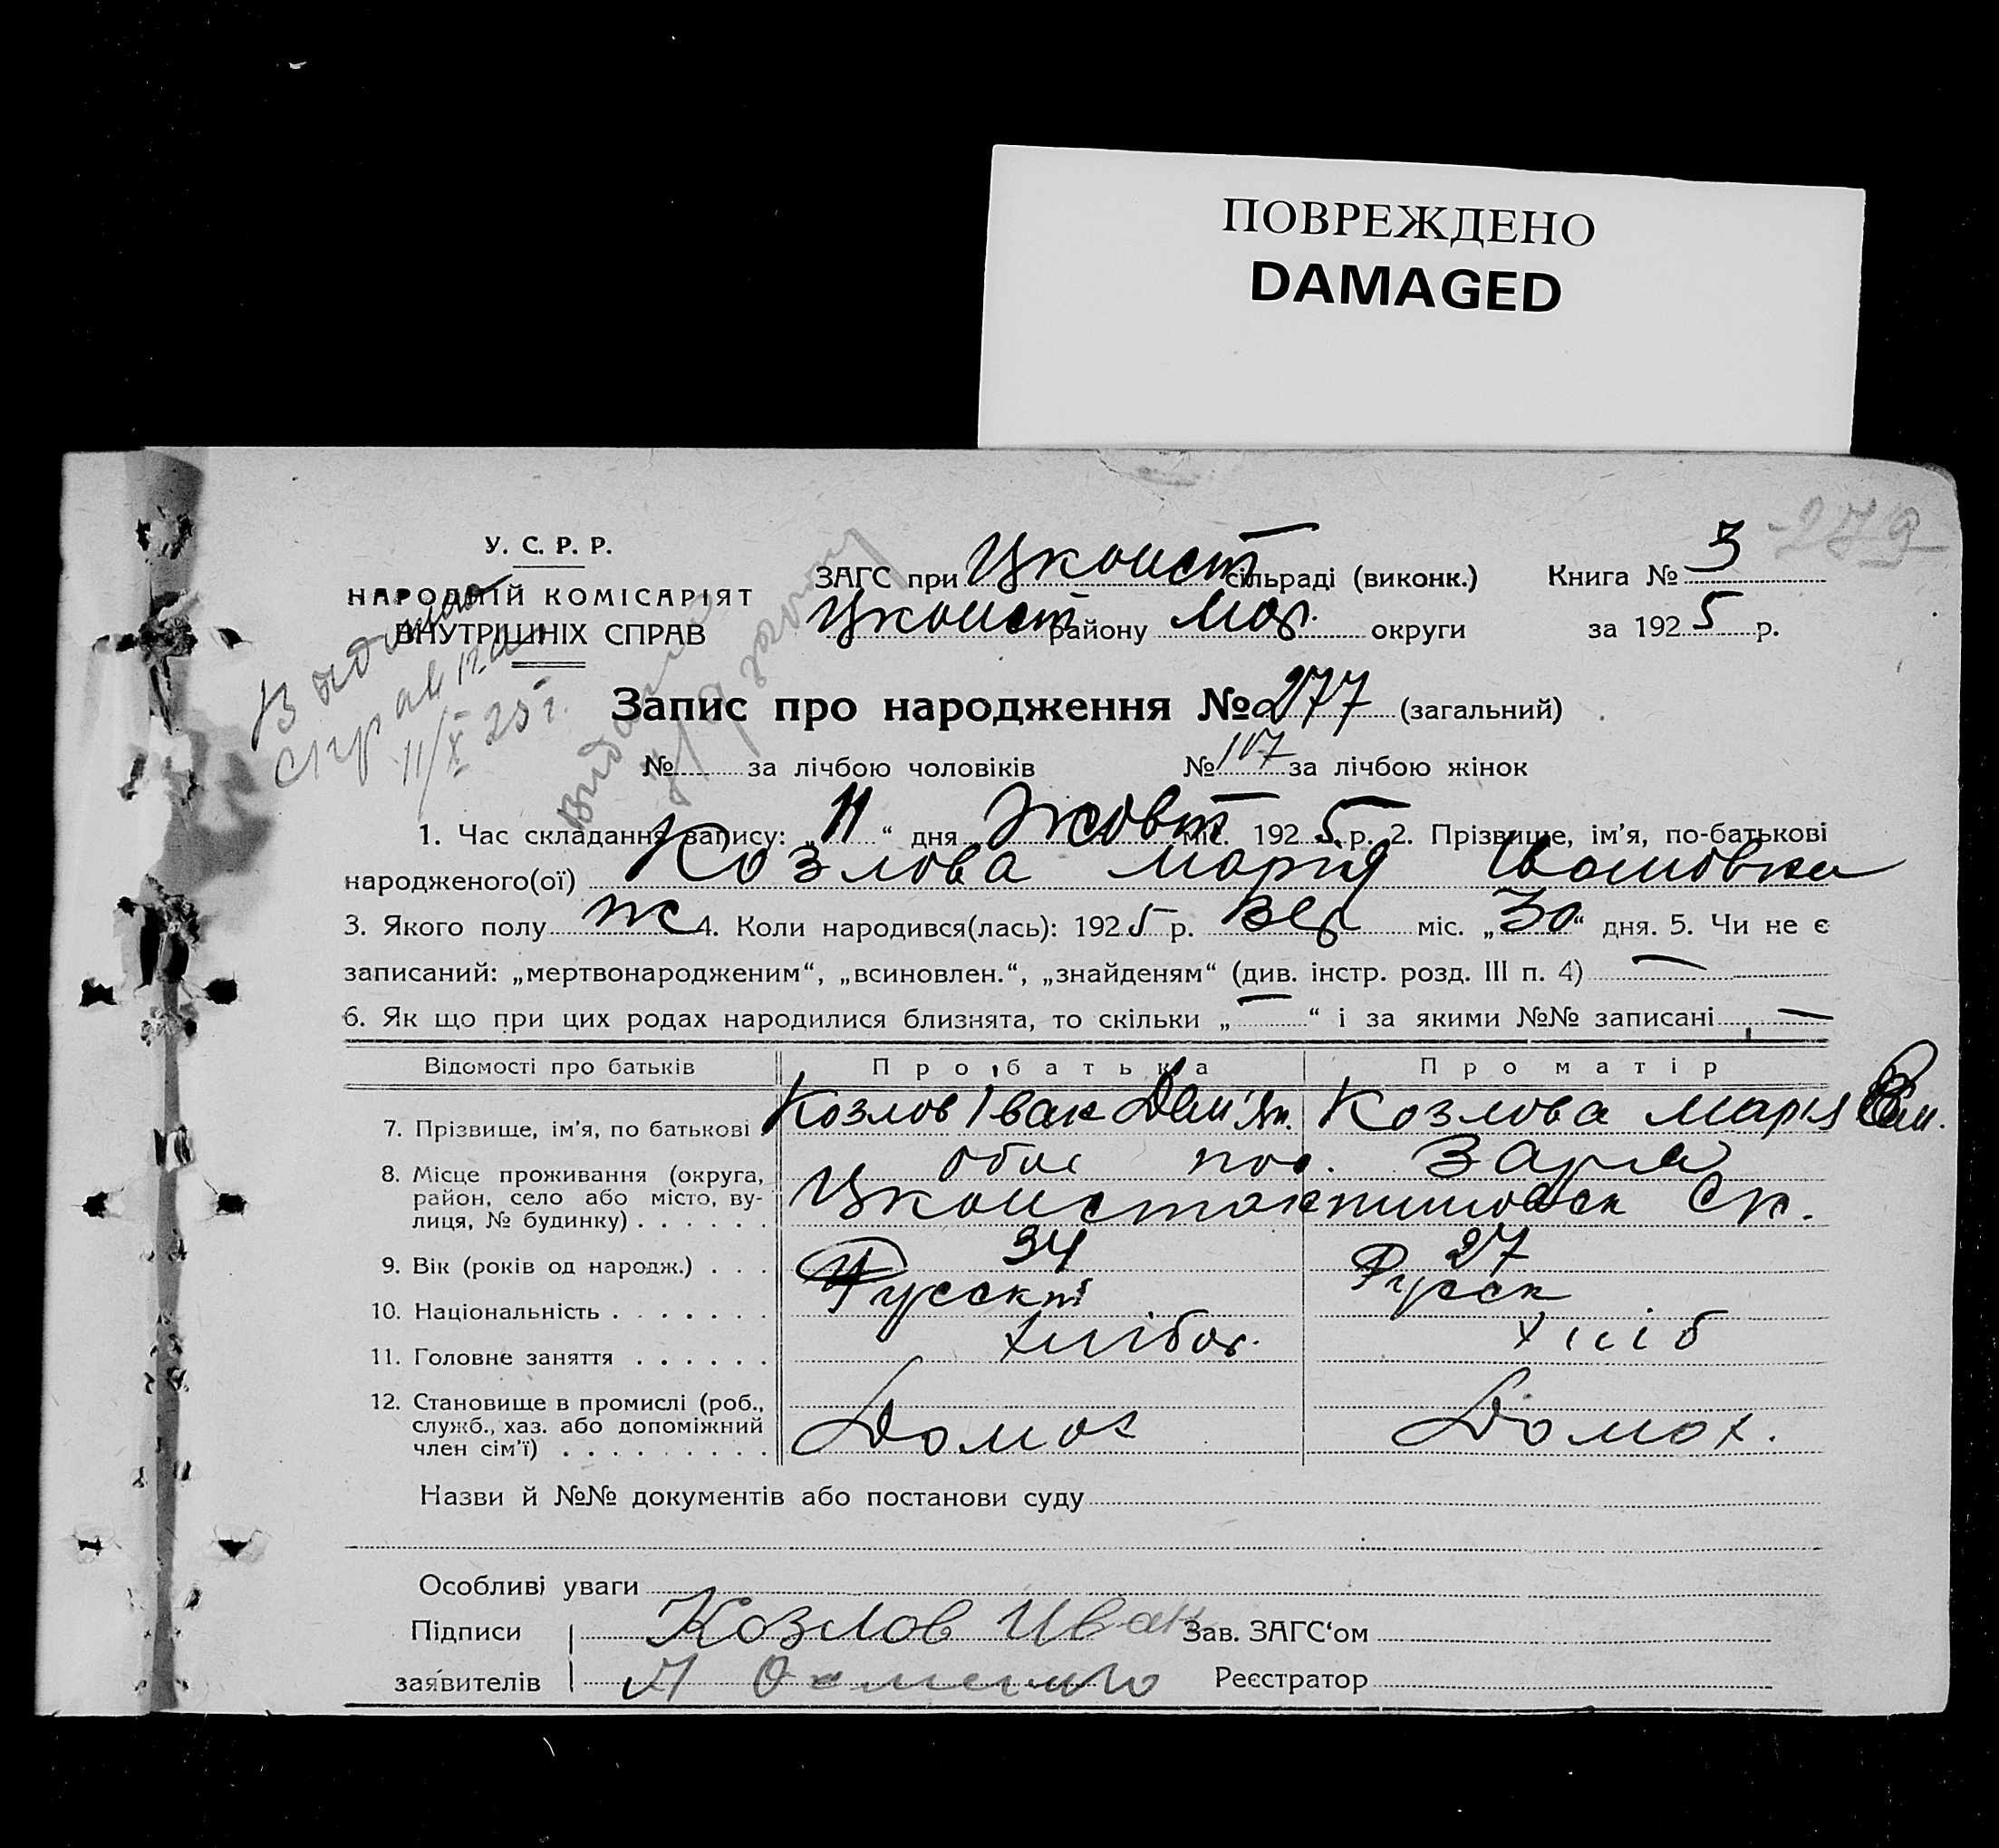 ПОВРЕЖДЕНО
DAMAGED
279
У. С. Р. Р.
НАРОДНІЙ КОМІСАРІЯТ
ВНУТРІШНІХ СПРАВ
ЗАГС при Цконст сільраді (виконк.) Книга № 3
Цконст району Мол. округи за 1925 р.
11/X 25 г.
Запис про народження № 277 (загальний)
№ за лічбою чоловіків № 107 за лічбою жінок
1. Час складання запису: „11“ дня Жовт міс. 1925 р. 2. Прізвище, ім’я, по-батькові
народженого(ої) Козлова Марія Івановна
3. Якого полу ж 4. Коли народився(лась): 1925 р. Вер міс. „30“ дня. 5. Чи не є
записаний: „мертвонародженим“, „всиновлен.“, „знайденям“ (див. інстр. розд. III п. 4) —
6. Як що при цих родах народилися близнята, то скільки „—“ і за якими №№ записані —
Відомості про батьків Про батька Про матір
7. Прізвище, ім’я, по батькові Козлов Іван Дем’ян. Козлова Марія
8. Місце проживання (округа, район, село або місто, вулиця, № будинку) пос. Заря
9. Вік (років од народж.) 34 27
10. Національність Русскі Русск
11. Головне заняття хлібор. хліб
12. Становище в промислі (роб., служб., хаз. або допоміжний член сім’ї) Домох Домох.
Назви й №№ документів або постанови суду
Особливі уваги
Підписи Козлов Иван Зав. ЗАГС‘ом
заявителів Реєстратор